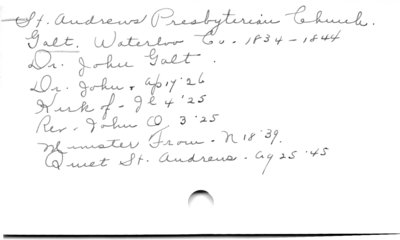 St. Andrews Presbyterian Church.
Galt. Waterloo Co. - 1834 - 1844
Dr. John Galt.
Dr. John. ap 17 '26
Kirk of - Je 4 '25
Rev. John O 3 '25
Minister From - N 18 '39.
Quiet St. Andrews. Ag 25 '45